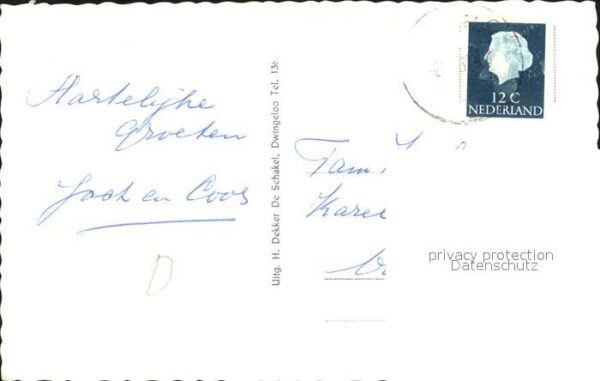 Hartelijke
Groeten
Jook en Coos
D
Uitg. H. Dekker De Schakel, Dwingeloo Tel. 136
12 C
NEDERLAND
Fam.
Karel
privacy protection
Datenschutz